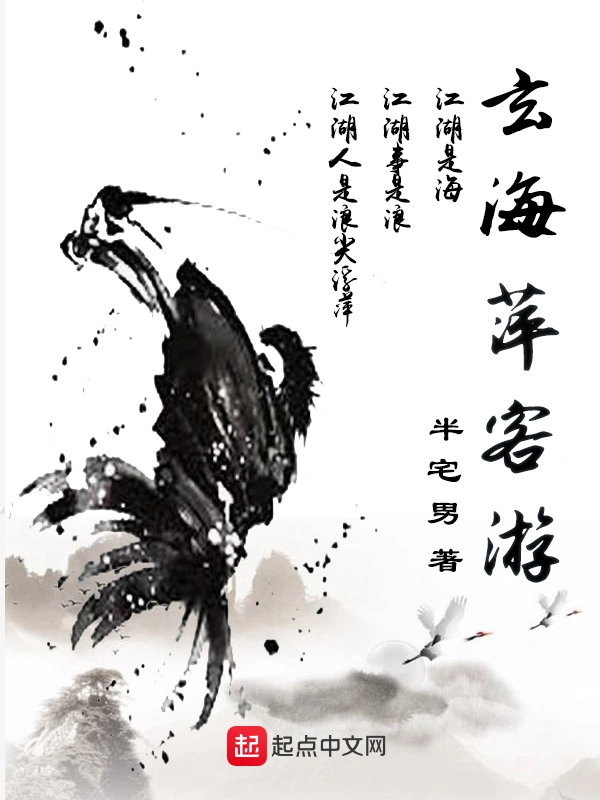 玄海萍客游
江湖是海
江湖事是浪
江湖人是浪尖浮萍
半宅男著
起 起点中文网